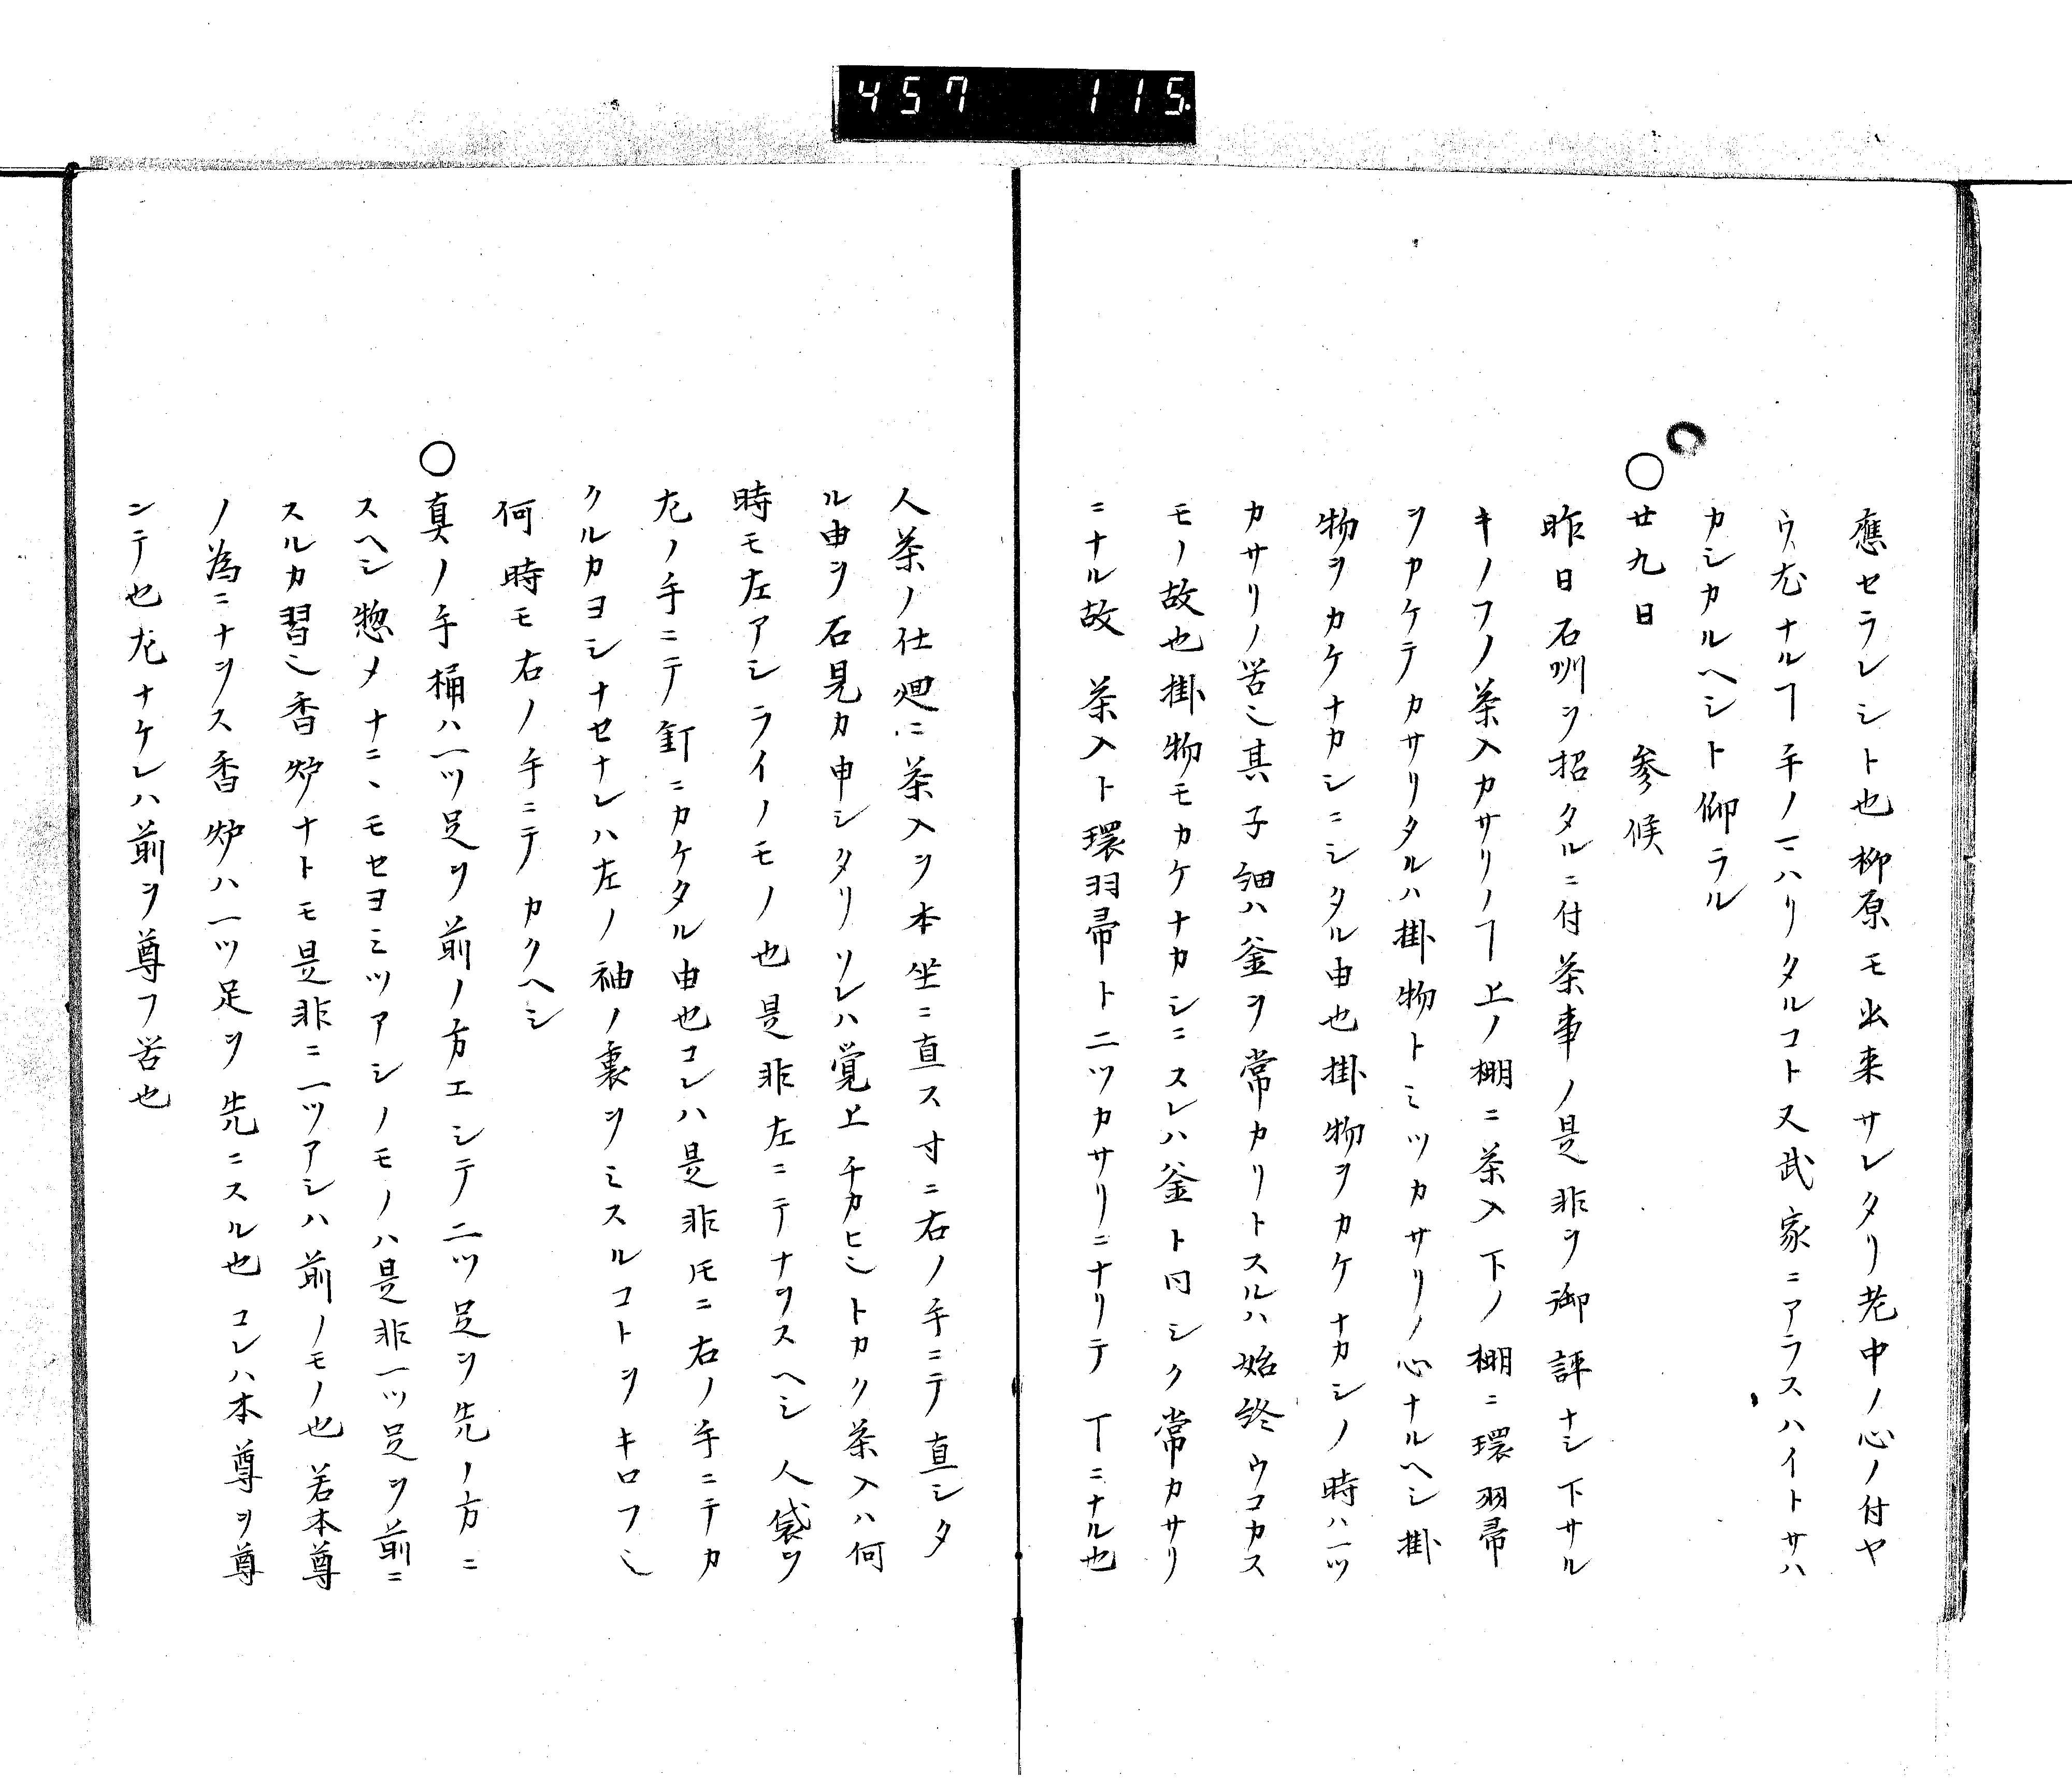 457 115.
應セラレシト也柳原モ出来サレタリ老中ノ心ノ付ヤ
ウ尤ナルヿ手ノマハリタルコト又武家ニアラスハイトサハ
カシカルヘシト仰ラル
○廿九日 参候
昨日石州ヲ招タルニ付茶事ノ是非ヲ御評ナシ下サル
キノフノ茶入カサリノヿ上ノ棚ニ茶入下ノ棚ニ環羽帚
ヲカケテカサリタルハ掛物トミツカサリノ心ナルヘシ掛
物ヲカケナカシニシタル由也掛物ヲカケナカシノ時ハ一ツ
カサリノ苦シ其子細ハ釜ヲ常カリトスルハ始終ウコカス
モノ故也掛物モカケナカシニスレハ釜ト同シク常カサリ
ニナル故 茶入ト環羽帚ト二ツカサリニナリテ丁ニナル也
人茶ノ仕廻ニ茶入ヲ本坐ニ直ス寸ニ右ノ手ニテ直シタ
ル由ヲ石見カ申シタリソレハ覚上チカヒシトカク茶入ハ何
時モ左アシライノモノ也是非左ニテナヲスヘシ 人袋ヲ
尤ノ手ニテ釘ニカケタル由也コレハ是非𪜈ニ右ノ手ニテカ
クルカヨシナセナレハ左ノ袖ノ裏ヲミスルコトヲキロフシ
何時モ右ノ手ニテカクヘシ
○真ノ手桶ハ一ツ足ヲ前ノ方エシテ二ツ足ヲ先ノ方ニ
スヘシ惣メナニヽモセヨミツアシノモノハ是非一ツ足ヲ前ニ
スルカ習シ香炉ナトモ是非ニ一ツアシハ前ノモノ也若本尊
ノ為ニナヲス香炉ハ一ツ足ヲ先ニスル也コレハ本尊ヲ尊
ンテ也尤ナケレハ前ヲ尊フ苦也